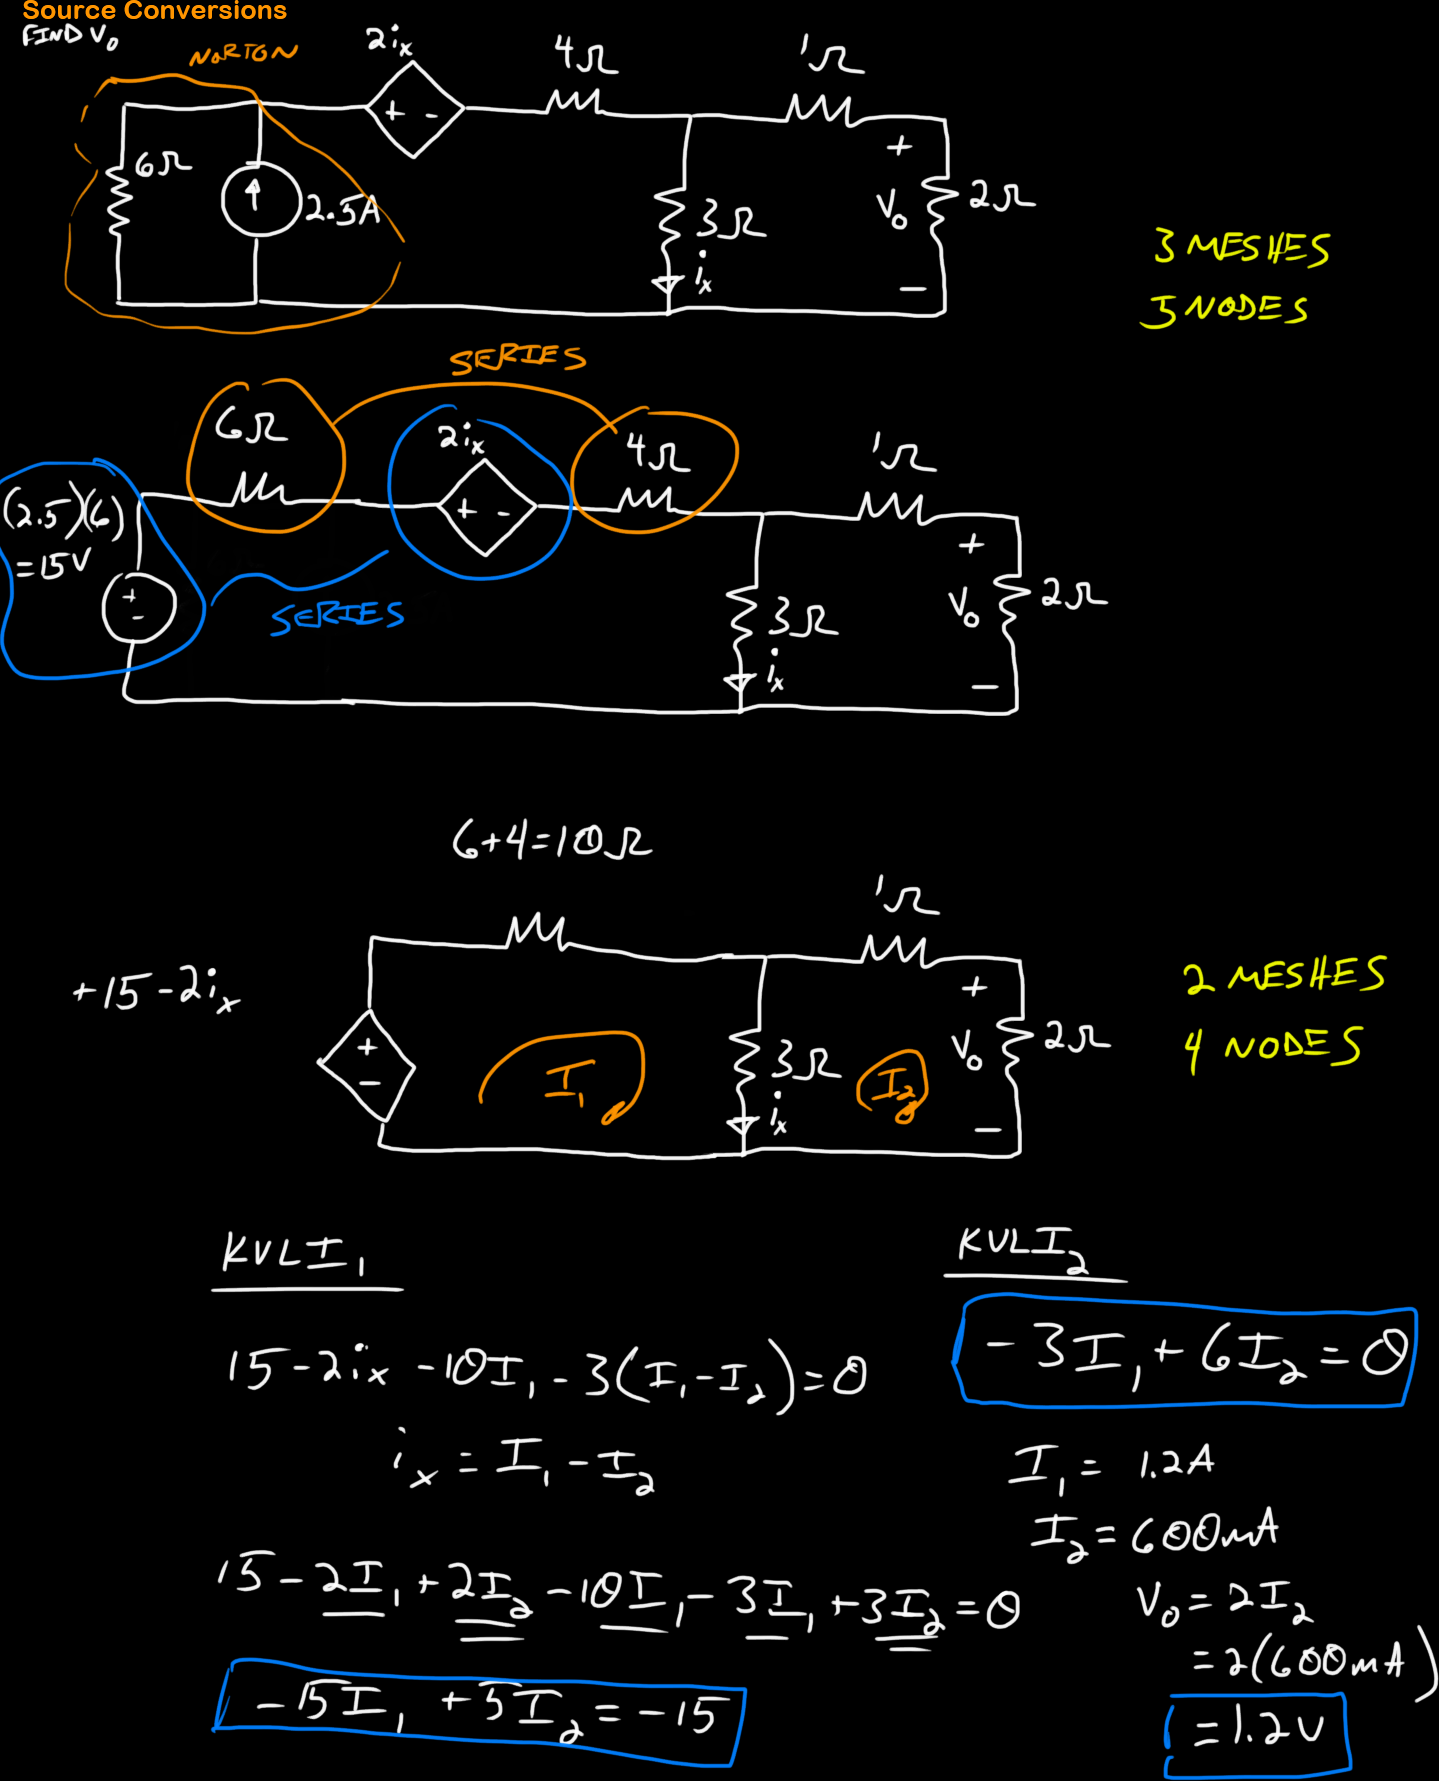 Source Conversions
FIND V₀
NORTON
2iₓ
4Ω
1Ω
+ -
6Ω
2.5A
3Ω
iₓ
+
V₀
-
2Ω
3 MESHES
5 NODES
SERIES
6Ω
2iₓ
4Ω
1Ω
(2.5)(6)
=15V
+
-
+ -
SERIES
3Ω
iₓ
+
V₀
-
2Ω
6+4=10Ω
1Ω
+15-2iₓ
+
-
I₁
3Ω
iₓ
I₂
+
V₀
-
2Ω
2 MESHES
4 NODES
KVL I₁
15-2iₓ-10I₁-3(I₁-I₂)=0
iₓ=I₁-I₂
15-2I₁+2I₂-10I₁-3I₁+3I₂=0
-15I₁+5I₂=-15
KVL I₂
-3I₁+6I₂=0
I₁=1.2A
I₂=600mA
V₀=2I₂
=2(600mA)
=1.2V